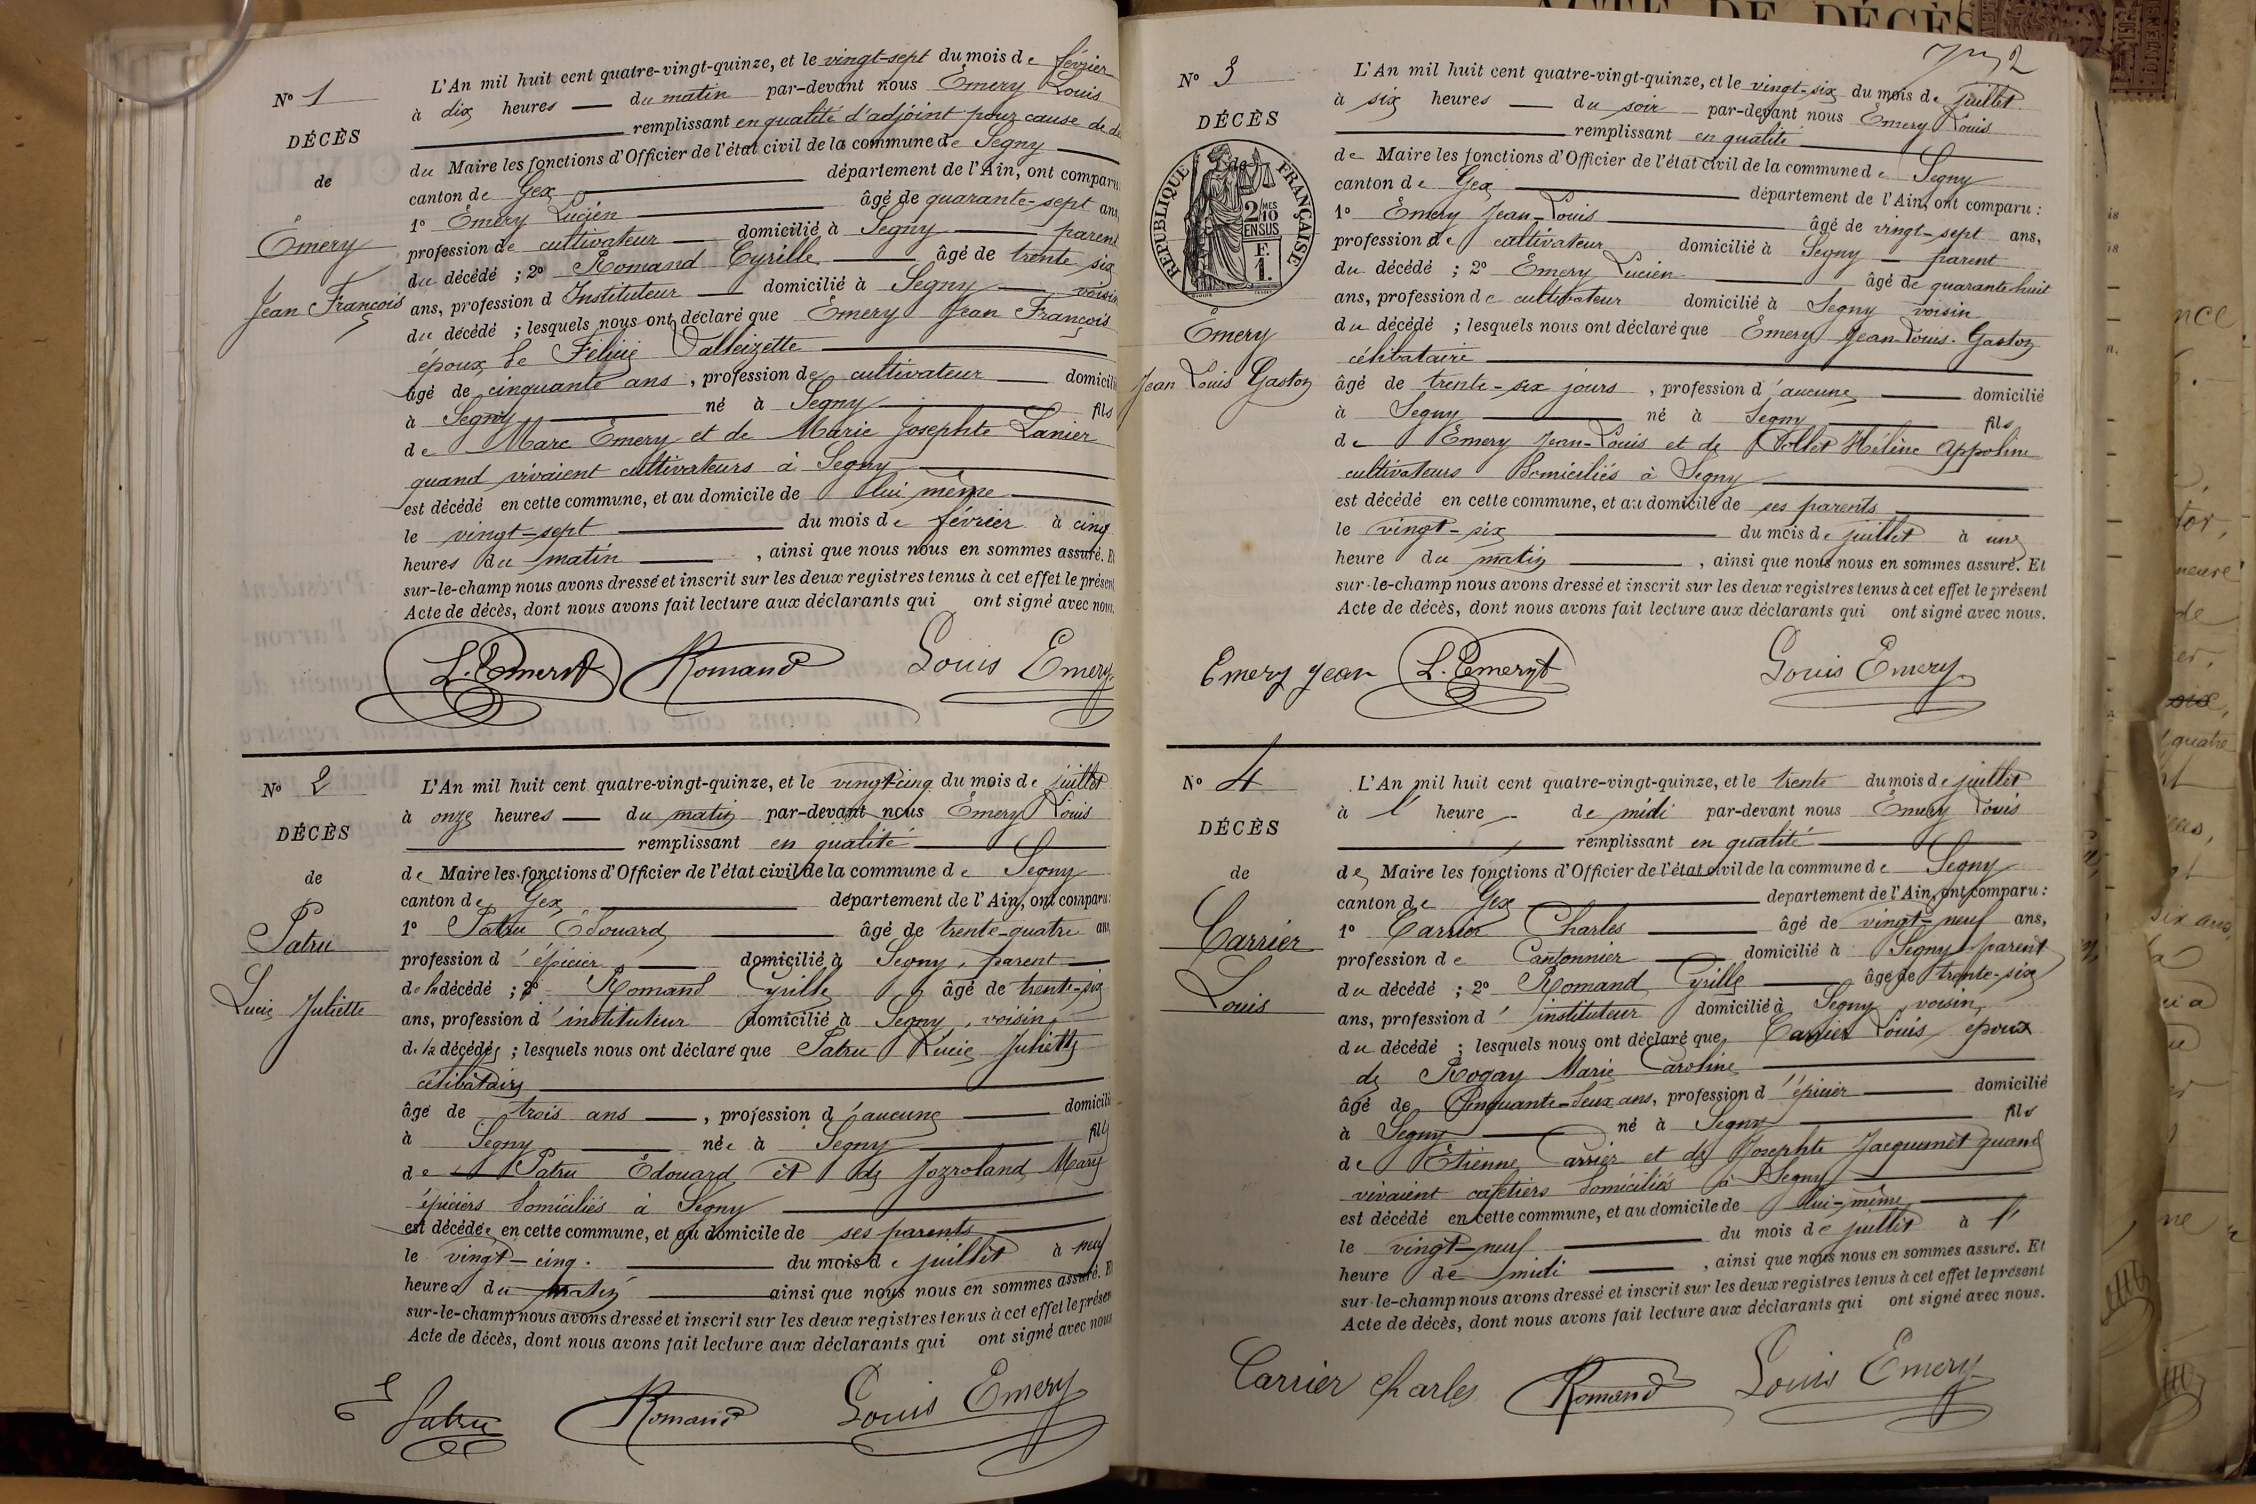 N° 1
DÉCÈS
de
Émery
Jean François
L'An mil huit cent quatre-vingt-quinze, et le vingt-sept du mois de février
à dix heures du matin par-devant nous Émery Louis
remplissant en qualité d'adjoint pour cause de
du Maire les fonctions d'Officier de l'état civil de la commune de Segny
canton de Gex département de l'Ain, ont comparu
1° Émery Lucien âgé de quarante-sept ans,
profession de cultivateur domicilié à Segny parent
du décédé ; 2° Romand Cyrille âgé de trente six
ans, profession d Instituteur domicilié à Segny voisin
du décédé ; lesquels nous ont déclaré que Émery Jean François
époux de Félicie
âgé de cinquante ans, profession de cultivateur domicilié
à Segny né à Segny fils
de Marc Émery et de Marie Josephte Lanier
quand vivaient cultivateurs à Segny
est décédé en cette commune, et au domicile de lui même
le vingt-sept du mois de février à cinq
heures du matin, ainsi que nous nous en sommes assuré. Et
sur-le-champ nous avons dressé et inscrit sur les deux registres tenus à cet effet le présent
Acte de décès, dont nous avons fait lecture aux déclarants qui ont signé avec nous.
L. Emery Romand Louis Emery
N° 2
DÉCÈS
de
Patru
Lucie Juliette
L'An mil huit cent quatre-vingt-quinze, et le vingt-cinq du mois de juillet
à onze heures du matin par-devant nous Émery Louis
remplissant en qualité
de Maire les fonctions d'Officier de l'état civil de la commune de Segny
canton de Gex département de l'Ain, ont comparu :
1° Patru Édouard âgé de trente-quatre ans,
profession d'épicier domicilié à Segny, parent
de la décédé ; 2° Romand Cyrille âgé de trente-six
ans, profession d'instituteur domicilié à Segny, voisin,
de la décédée ; lesquels nous ont déclaré que Patru Lucie Juliette
célibataire
âgé de trois ans, profession d'aucune domicilié
à Segny née à Segny fille
de Patru Édouard et de Jozroland Mary
épiciers domiciliés à Segny
est décédée en cette commune, et au domicile de ses parents
le vingt-cinq du mois de juillet à neuf
heures du matin ainsi que nous nous en sommes assuré. Et
sur-le-champ nous avons dressé et inscrit sur les deux registres tenus à cet effet le présent
Acte de décès, dont nous avons fait lecture aux déclarants qui ont signé avec nous
E Patru Romand Louis Emery
ACTE DE DÉCÈS
2
N° 3
DÉCÈS
de
RÉPUBLIQUE FRANÇAISE
2/10 MCS
EN SUS
F.
1.
Émery
Jean Louis Gaston
L'An mil huit cent quatre-vingt-quinze, et le vingt-six du mois de juillet
à six heures du soir par-devant nous Émery Louis
remplissant en qualité
de Maire les fonctions d'Officier de l'état civil de la commune de Segny
canton de Gex département de l'Ain, ont comparu :
1° Émery Jean-Louis âgé de vingt-sept ans,
profession de cultivateur domicilié à Segny parent
du décédé ; 2° Émery Lucien âgé de quarante huit
ans, profession de cultivateur domicilié à Segny voisin
du décédé ; lesquels nous ont déclaré que Émery Jean-Louis-Gaston
célibataire
âgé de trente-six jours, profession d'aucune domicilié
à Segny né à Segny fils
de Émery Jean-Louis et de Hélène Appoline
cultivateurs domiciliés à Segny
est décédé en cette commune, et au domicile de ses parents
le vingt-six du mois de juillet à une
heure du matin, ainsi que nous nous en sommes assuré. Et
sur-le-champ nous avons dressé et inscrit sur les deux registres tenus à cet effet le présent
Acte de décès, dont nous avons fait lecture aux déclarants qui ont signé avec nous.
Emery Jean L. Emery Louis Emery
N° 4
DÉCÈS
de
Carrier
Louis
L'An mil huit cent quatre-vingt-quinze, et le trente du mois de juillet
à 1 heure de midi par-devant nous Émery Louis
remplissant en qualité
de Maire les fonctions d'Officier de l'état civil de la commune de Segny
canton de Gex département de l'Ain, ont comparu :
1° Carrier Charles âgé de vingt-neuf ans,
profession de Cantonnier domicilié à Segny parent
du décédé ; 2° Romand Cyrille âgé de trente-six
ans, profession d'instituteur domicilié à Segny, voisin,
du décédé ; lesquels nous ont déclaré que Carrier Louis époux
de Rogay Marie Caroline
âgé de Cinquante-deux ans, profession d'épicier domicilié
à Segny né à Segny fils
de Étienne Carrier et de Josephte Jacquemet quand
vivaient cafetiers domiciliés à Segny
est décédé en cette commune, et au domicile de lui-même
le vingt-neuf du mois de juillet à 1
heure de midi, ainsi que nous nous en sommes assuré. Et
sur-le-champ nous avons dressé et inscrit sur les deux registres tenus à cet effet le présent
Acte de décès, dont nous avons fait lecture aux déclarants qui ont signé avec nous.
Carrier Charles Romand Louis Emery